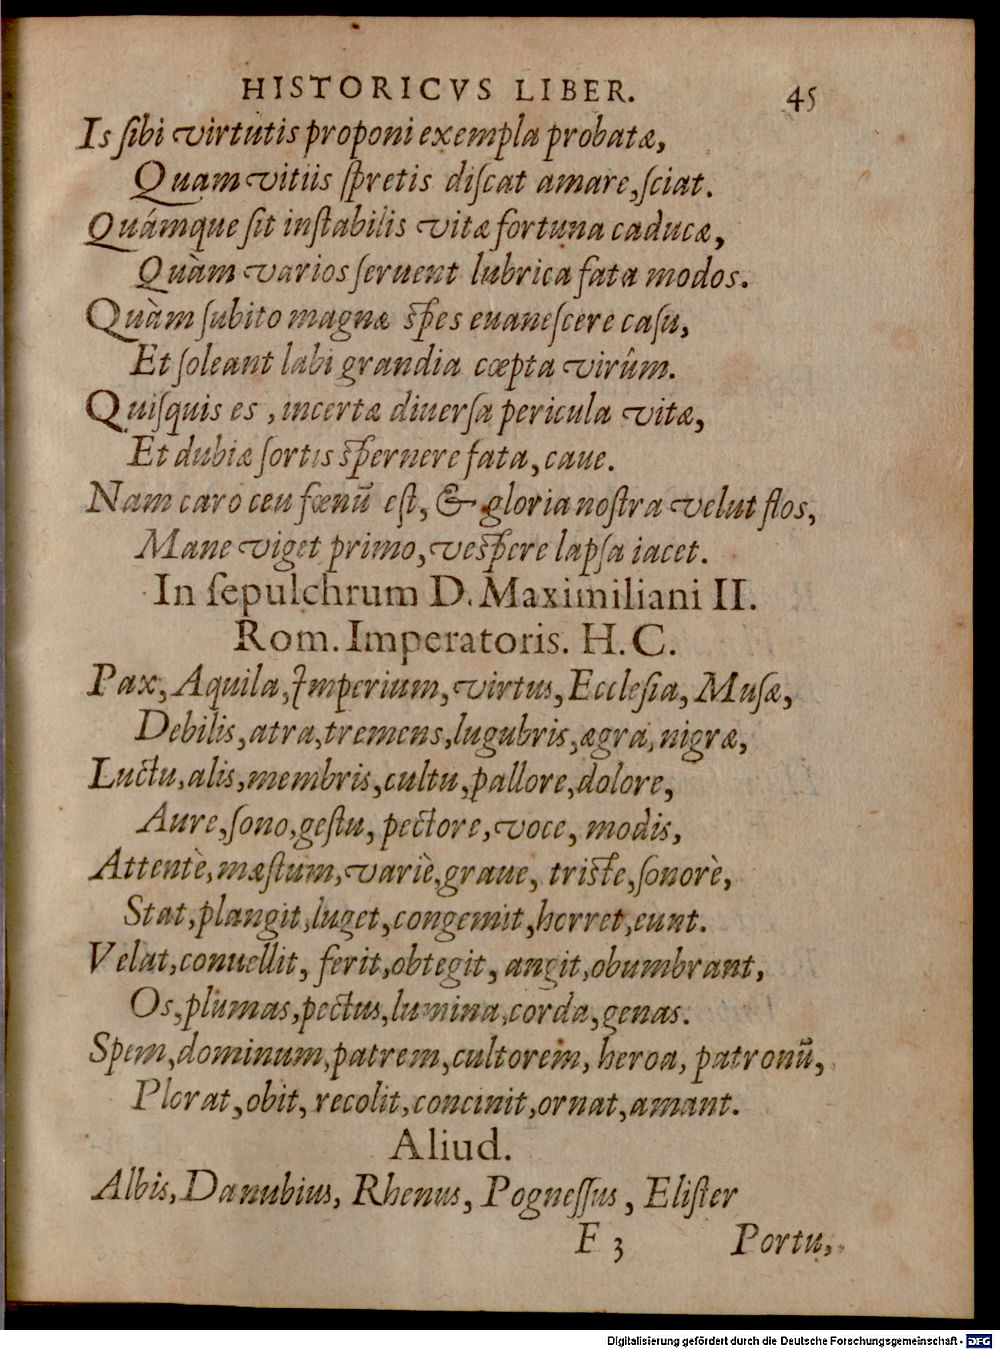 HISTORICVS LIBER. 45
Is ſibi virtutis proponi exempla probatæ,
Quam vitiis ſpretis diſcat amare, ſciat.
Quámque ſit inſtabilis vitæ fortuna caducæ,
Quàm varios ſeruent lubrica fata modos.
Quàm ſubito magnæ ſpes euaneſcere caſu,
Et ſoleant labi grandia cœpta virûm.
Quiſquis es, incertæ diuerſa pericula vitæ,
Et dubiæ ſortis ſpernere fata, caue.
Nam caro ceu fœnū eſt, & gloria noſtra velut flos,
Mane viget primo, veſpere lapſa iacet.
In ſepulchrum D. Maximiliani II.
Rom. Imperatoris. H. C.
Pax, Aquila, Imperium, virtus, Eccleſia, Muſæ,
Debilis, atra, tremens, lugubris, ægra, nigræ,
Luctu, alis, membris, cultu, pallore, dolore,
Aure, ſono, geſtu, pectore, voce, modis,
Attentè, mæſtum, variè, graue, triſte, ſonorè,
Stat, plangit, luget, congemit, horret, eunt.
Velat, conuellit, ferit, obtegit, angit, obumbrant,
Os, plumas, pectus, lumina, corda, genas.
Spem, dominum, patrem, cultorem, heroa, patronū,
Plorat, obit, recolit, concinit, ornat, amant.
Aliud.
Albis, Danubius, Rhenus, Pogneſſus, Eliſter
F 3 Portu,
Digitalisierung gefördert durch die Deutsche Forschungsgemeinschaft - DFG